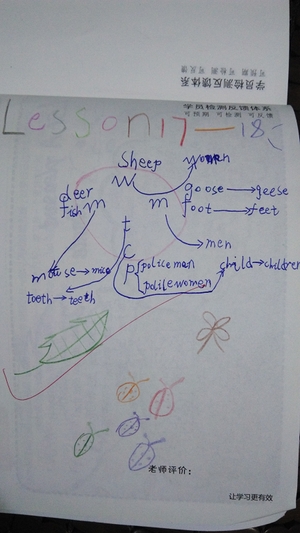 学员检测反馈体系
可预期 可检测 可反馈
学员检测反馈体系
可预期 可检测 可反馈
Lesson 17-18
Sheep
women
deer
fish
m
w
m
goose→geese
foot→feet
t
men
c
mouse→mice
p
policeman
policewomen
child→children
tooth→teeth
老师评价：
让学习更有效